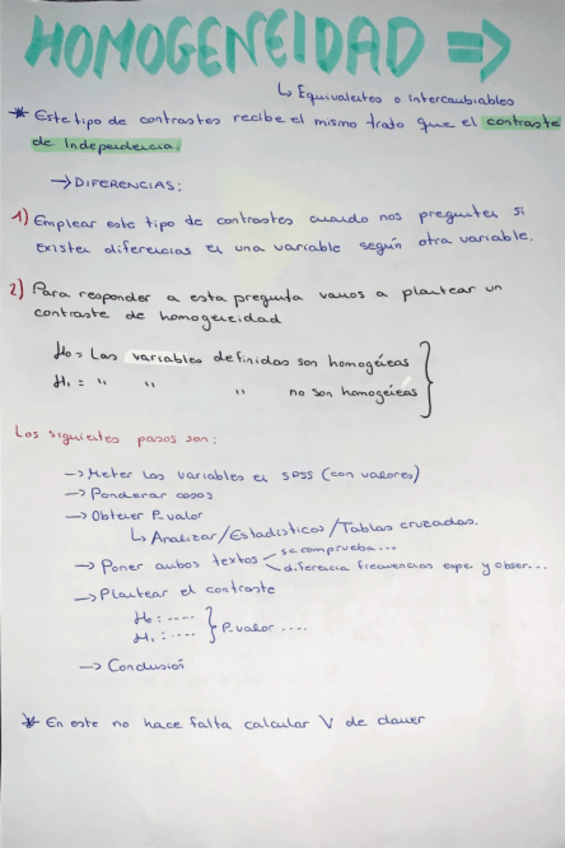 HOMOGENEIDAD =>
↳ Equivalentes o intercambiables
* Este tipo de contrastes recibe el mismo trato que el contraste
de Independencia.
→ DIFERENCIAS:
1) Emplear este tipo de contrastes cuando nos pregunten si
existen diferencias en una variable según otra variable.
2) Para responder a esta pregunta vamos a plantear un
contraste de homogeneidad
H0 = Las variables definidas son homogéneas
H1 = " " " no son homogéneas
Los siguientes pasos son:
→ Meter las variables en SPSS (con valores)
→ Ponderar casos
→ Obtener P-valor
↳ Analizar/Estadísticos/Tablas cruzadas.
→ Poner ambos textos
se comprueba...
diferencia frecuencias espe. y obser...
→ Plantear el contraste
H0: ----
H1: ----
P-valor ....
→ Conclusión
* En este no hace falta calcular V de clauer